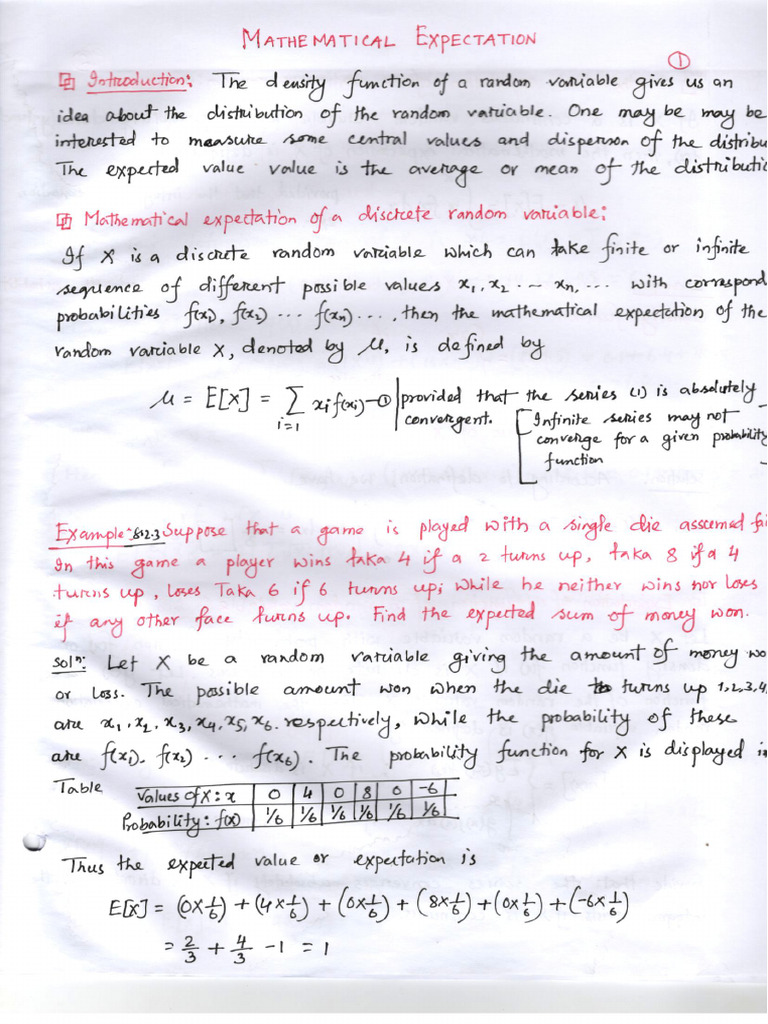 MATHEMATICAL EXPECTATION
①
Introduction: The density function of a random variable gives us an
idea about the distribution of the random variable. One may be may be
interested to measure some central values and dispersion of the distribu
The expected value value is the average or mean of the distributi
Mathematical expectation of a discrete random variable:
If X is a discrete random variable which can take finite or infinite
sequence of different possible values x₁, x₂ ... xₙ, ... with correspond
probabilities f(x₁), f(x₂) ... f(xₙ) ..., then the mathematical expectation of the
random variable X, denoted by μ, is defined by
μ = E[X] = Σ xᵢ f(xᵢ) —① provided that the series (1) is absolutely
i=1
convergent. [Infinite series may not
converge for a given probability
function
Example: 8.2.3 Suppose that a game is played with a single die assumed fai
In this game a player wins taka 4 if a 2 turns up, taka 8 if a 4
turns up, loses Taka 6 if 6 turns up; while he neither wins nor loses
if any other face turns up. Find the expected sum of money won.
Solⁿ: Let X be a random variable giving the amount of money wo
or loss. The possible amount won when the die turns up 1,2,3,4,
are x₁, x₂, x₃, x₄, x₅, x₆. respectively, while the probability of these
are f(x₁). f(x₂) ... f(x₆). The probability function for X is displayed i
Table
Values of X: x | 0 | 4 | 0 | 8 | 0 | -6
Probability: f(x) | 1/6 | 1/6 | 1/6 | 1/6 | 1/6 | 1/6
Thus the expected value or expectation is
E[X] = (0×1/6) + (4×1/6) + (0×1/6) + (8×1/6) + (0×1/6) + (-6×1/6)
= 2/3 + 4/3 - 1 = 1